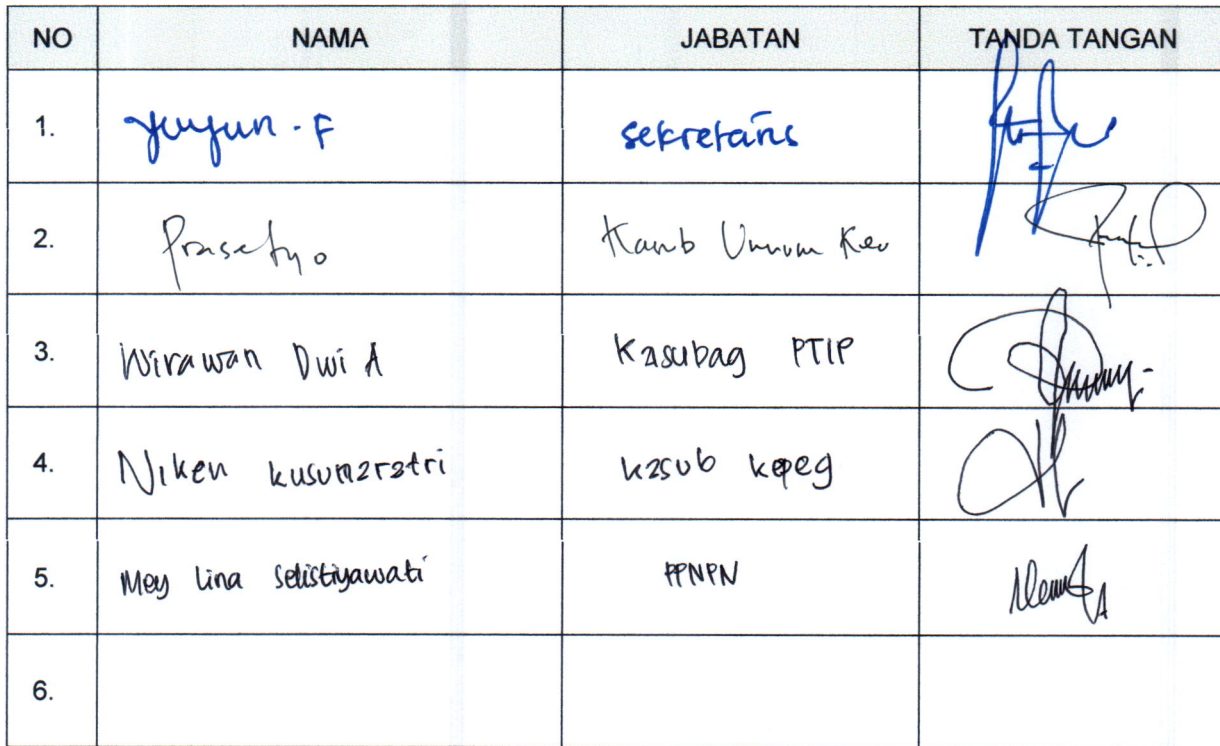 NO NAMA JABATAN TANDA TANGAN
1. Yuyun . F Sekretaris
2. Prasetyo Kasub Umum Keu
3. Wirawan Dwi A Kasubag PTIP
4. Niken Kusumaratri Kasub kepeg
5. Mey Lina Selistiyawati PPNPN
6.